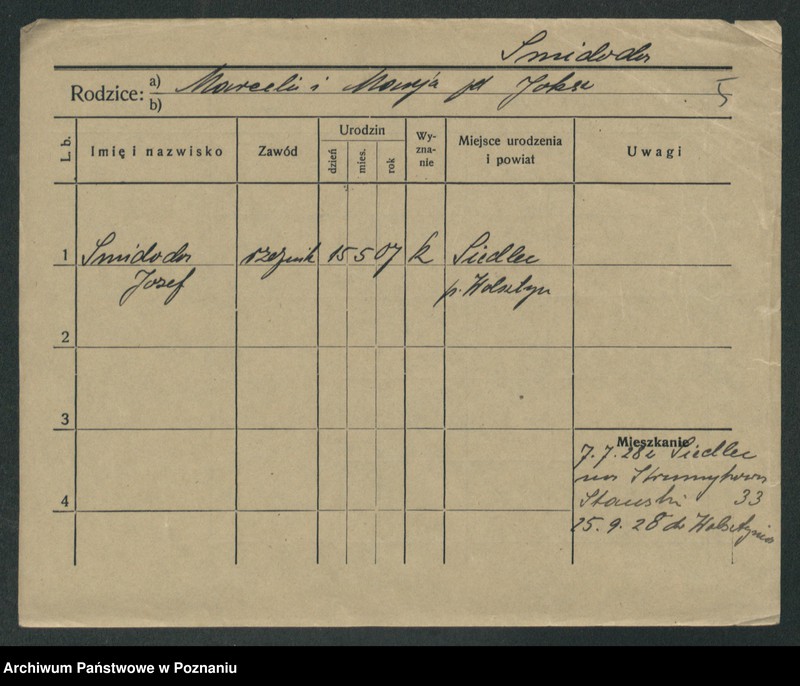 Smidoda
Rodzice: a) Marceli i Marja zd Joksz
b)
L. b. Imię i nazwisko Zawód Urodzin dzień mies. rok Wy-zna-nie Miejsce urodzenia i powiat Uwagi
1 Smidoda rzeźnik 15 5 07 k Siedlec
Józef p. Wolsztyn
2
3
Mieszkanie
7.7.28 z Siedlec
na Strumykowa
4 Stauski 33
15.9.28 do Wolsztyna
Archiwum Państwowe w Poznaniu